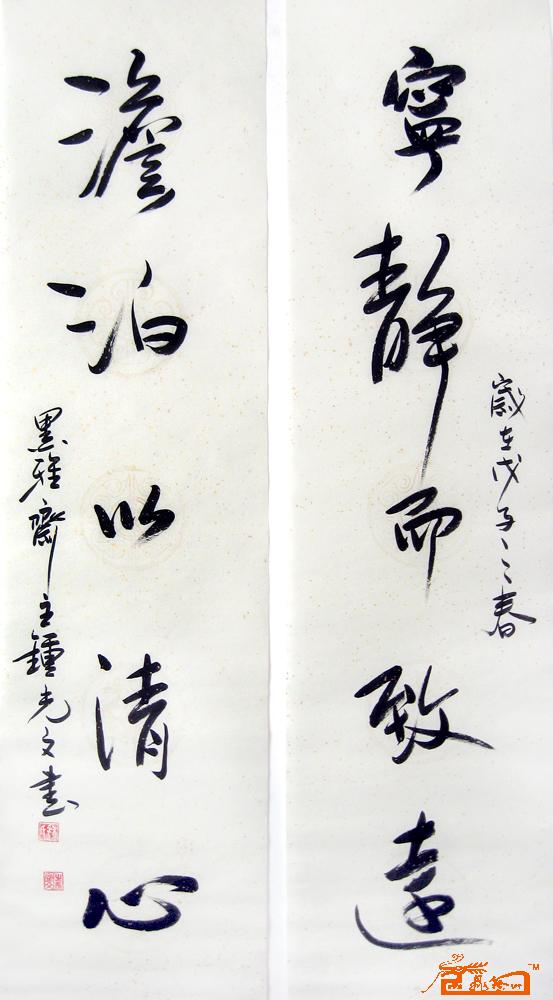 寧靜而致遠
歲在戊子之春
澹泊以清心
黑雅齋主鍾光文書